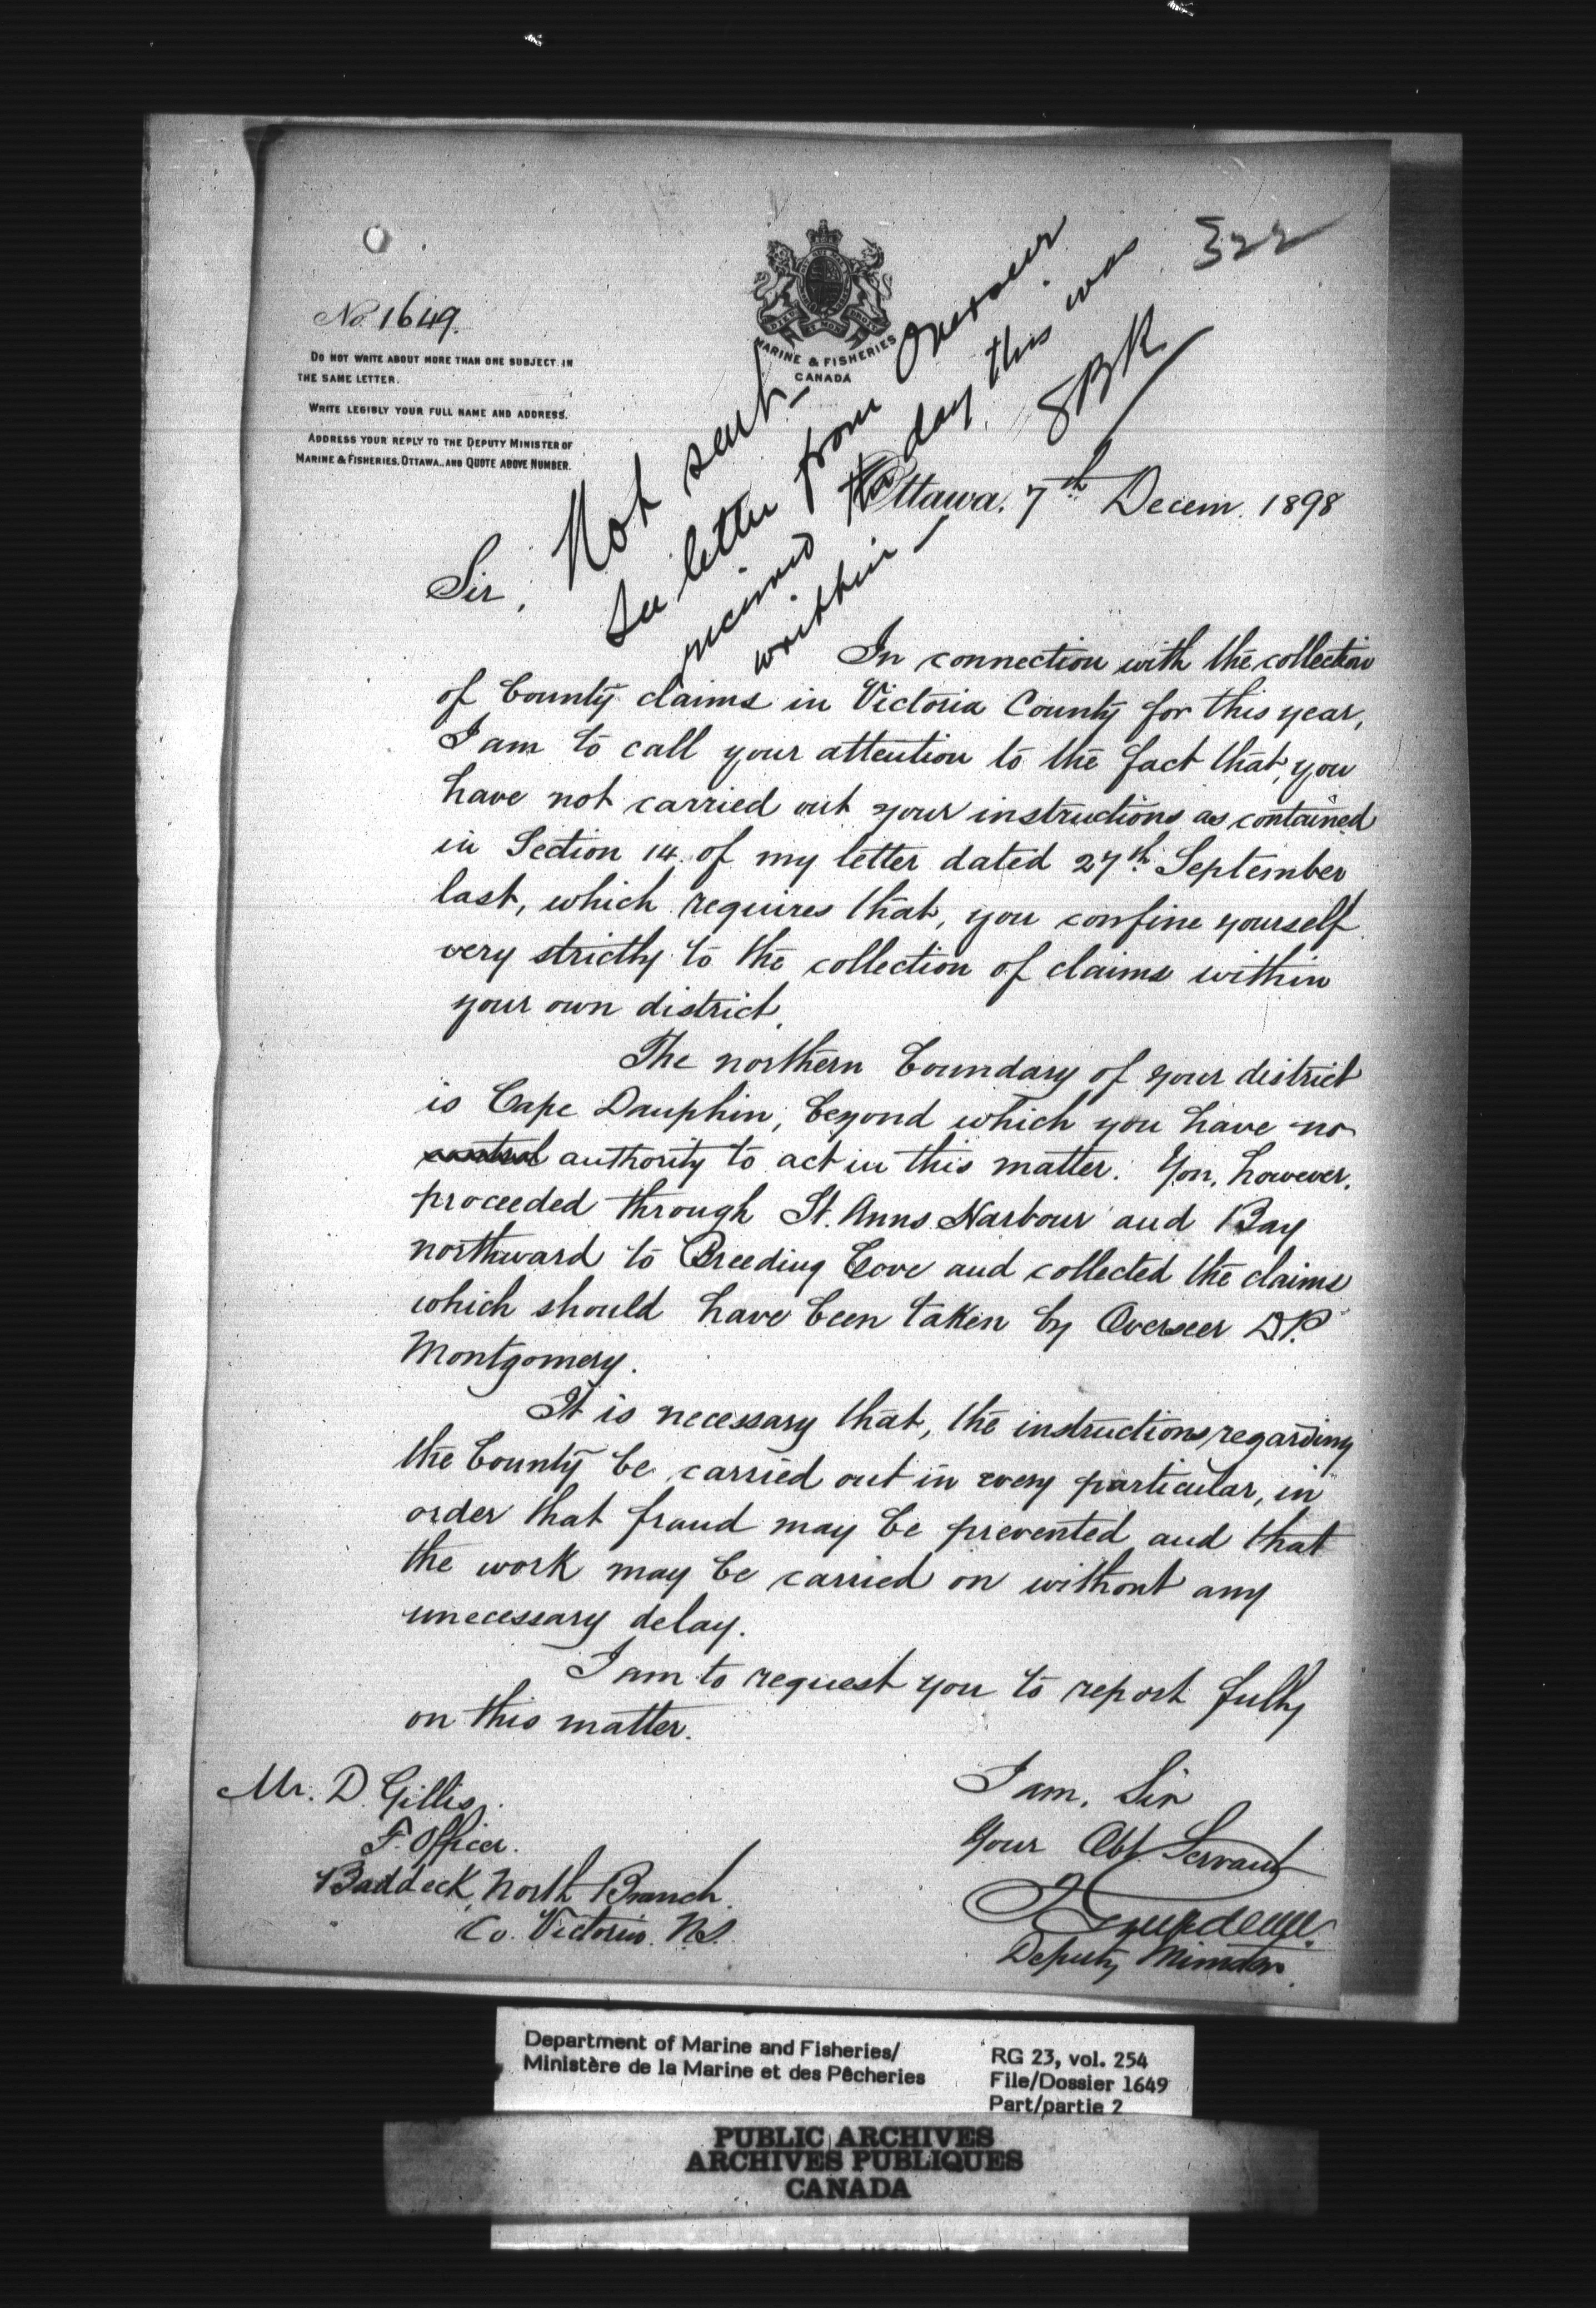 322
No. 1649.
DIEU ET MON DROIT
MARINE & FISHERIES
CANADA
DO NOT WRITE ABOUT MORE THAN ONE SUBJECT IN
THE SAME LETTER.
WRITE LEGIBLY YOUR FULL NAME AND ADDRESS.
ADDRESS YOUR REPLY TO THE DEPUTY MINISTER OF
MARINE & FISHERIES, OTTAWA, AND QUOTE ABOVE NUMBER.
Not sent –
See letter from Overseer
received the day this was
written –
Ottawa, 7th Decem. 1898
Sir,
In connection with the collection
of bounty claims in Victoria County for this year,
I am to call your attention to the fact that, you
have not carried out your instructions as contained
in Section 14 of my letter dated 27th September
last, which requires that, you confine yourself
very strictly to the collection of claims within
your own district.
The northern boundary of your district
is Cape Dauphin, beyond which you have no
control authority to act in this matter. You, however,
proceeded through St. Anns Harbour and Bay
northward to Breeding Cove and collected the claims
which should have been taken by Overseer D.P.
Montgomery.
It is necessary that, the instructions regarding
the bounty be carried out in every particular, in
order that fraud may be prevented and that
the work may be carried on without any
unecessary delay.
I am to request you to report fully
on this matter.
I am, Sir
Your Obt Servant
Deputy Minister.
Mr. D. Gillis,
F. Officer.
Baddeck, North Branch.
Co. Victoria. N.S.
Department of Marine and Fisheries/
Ministère de la Marine et des Pêcheries
RG 23, vol. 254
File/Dossier 1649
Part/partie 2
PUBLIC ARCHIVES
ARCHIVES PUBLIQUES
CANADA